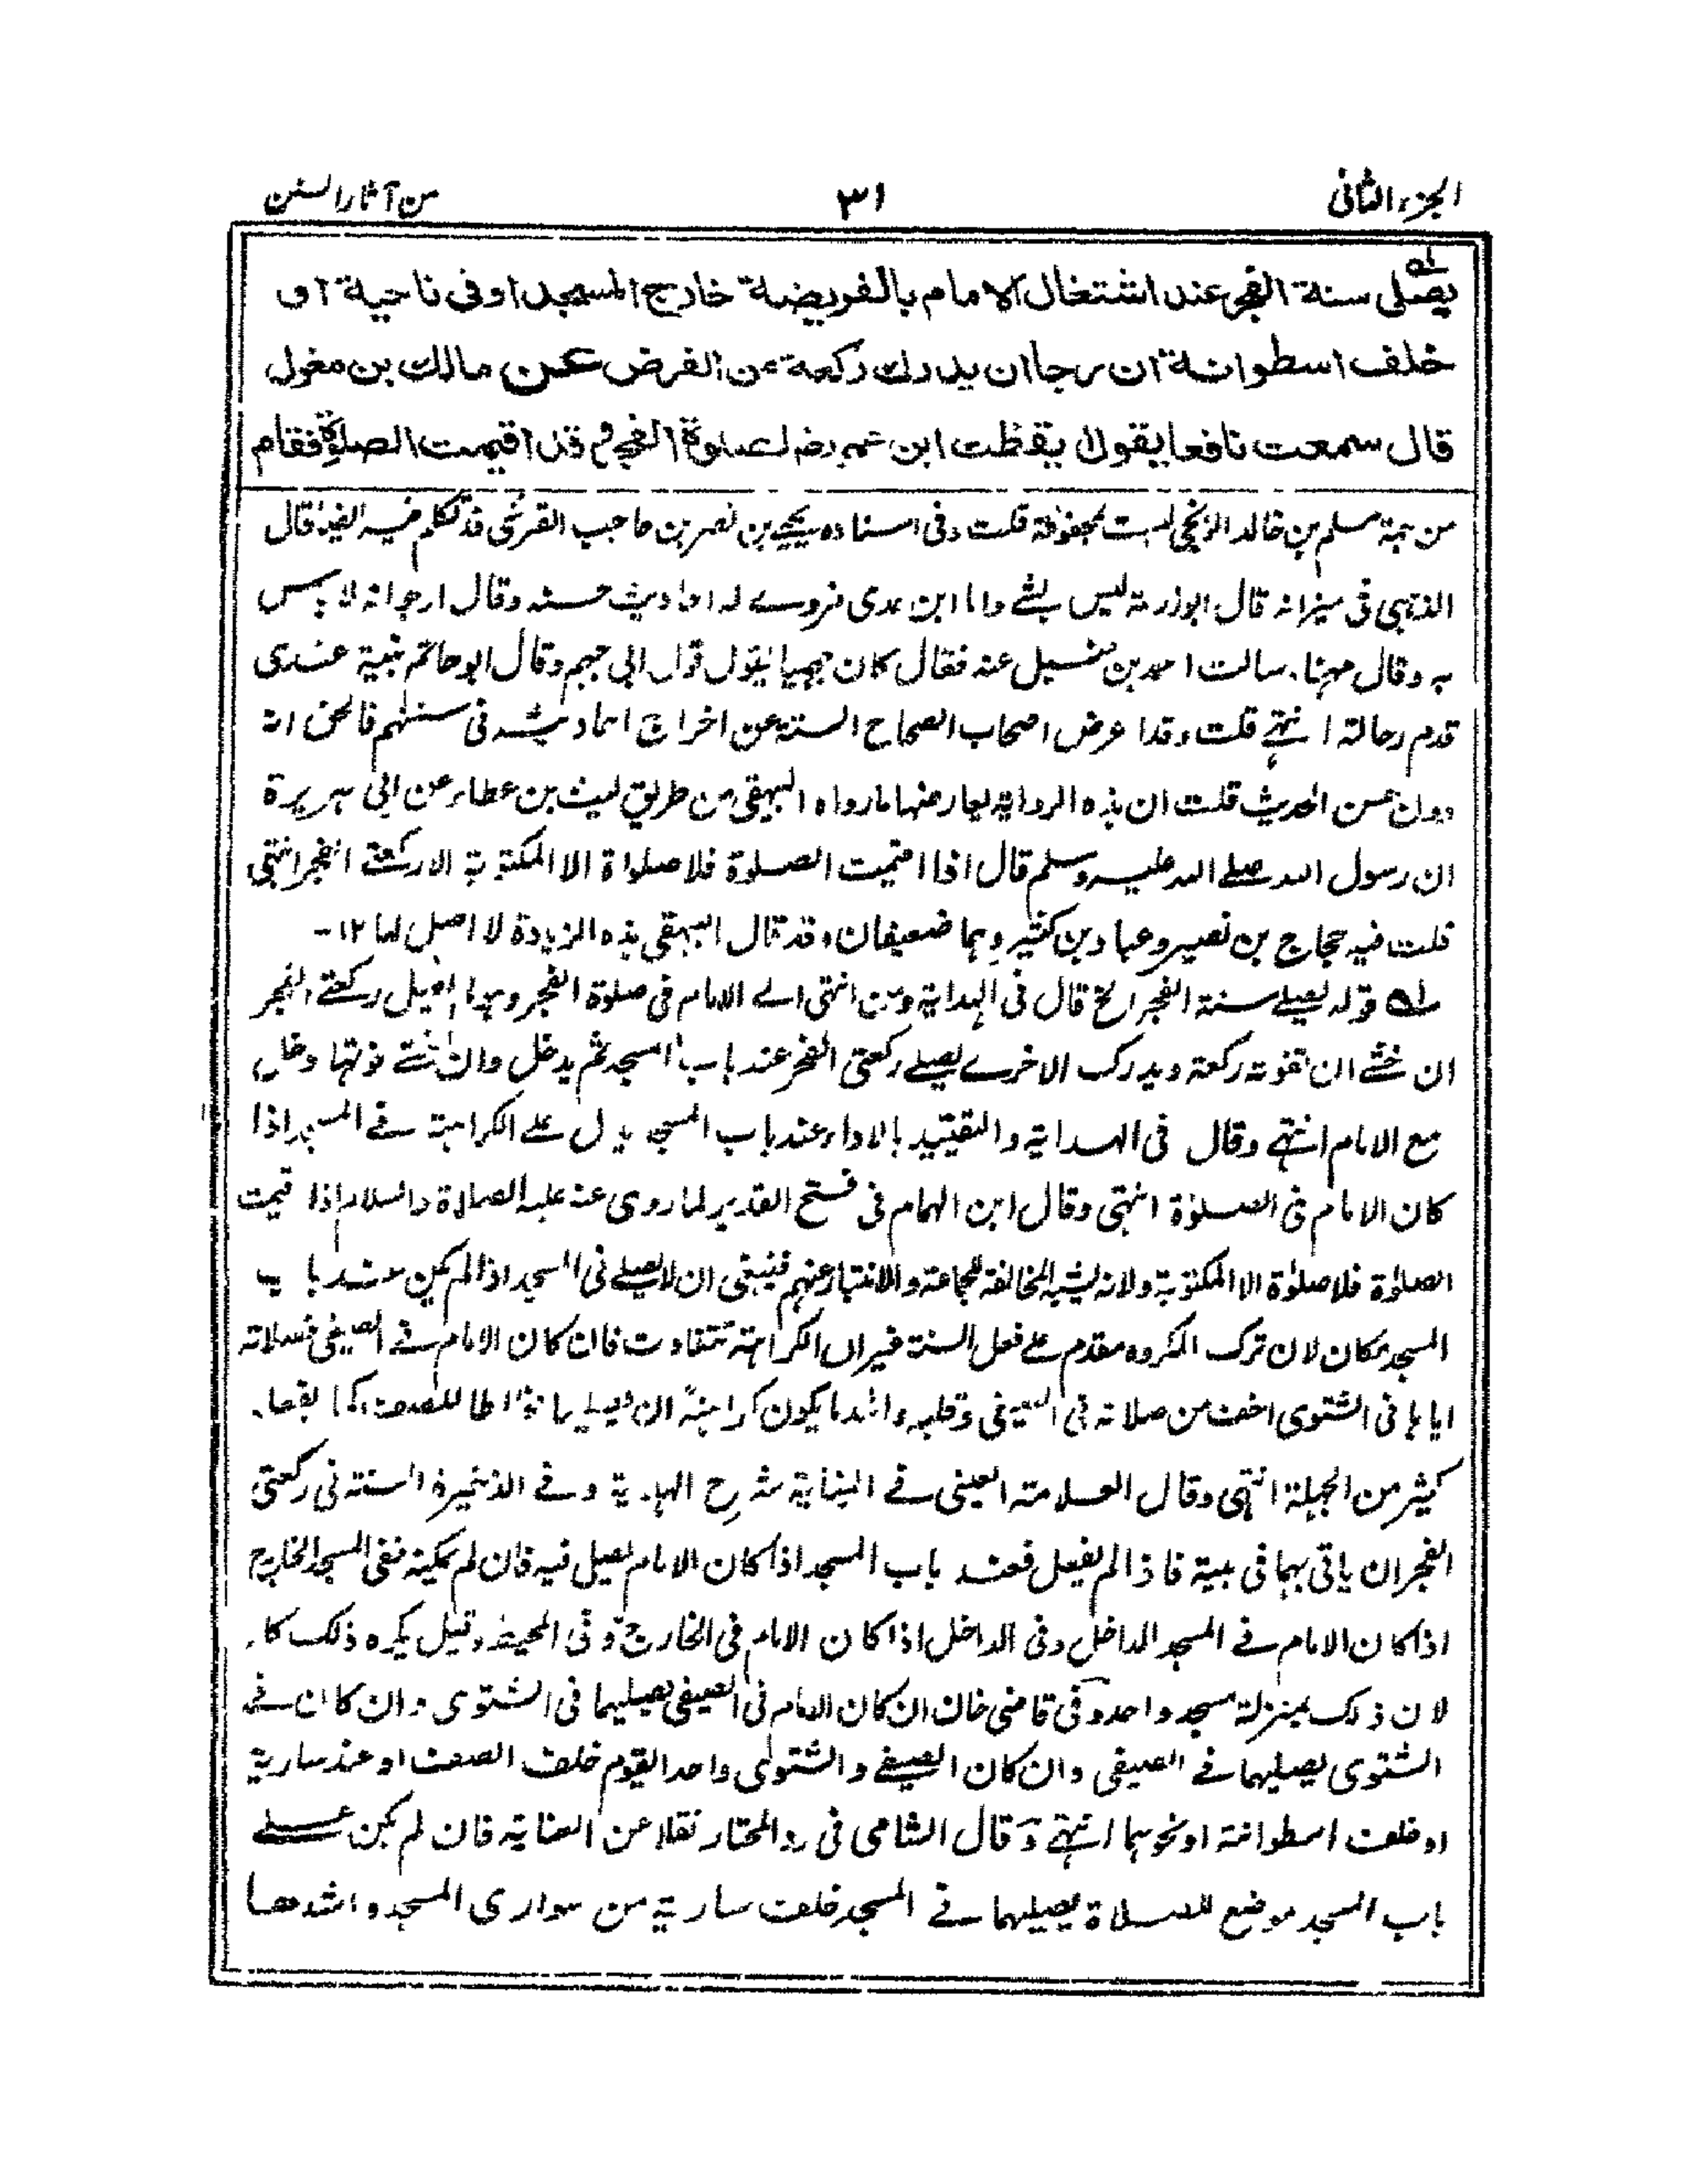 الجزء الثانی
٣١
من آثار السنن
يصلی سنة الفجر عند اشتغال الامام بالفريضة خارج المسجد او فی ناحية او
خلف اسطوانة ان رجا ان يدرك ركعة من الفرض عن مالك بن مغول
قال سمعت نافعا يقول ايقظت ابن عمر رضـ لصلوة الفجر و قد اقيمت الصلوة فقام
من جهة مسلم بن خالد الزنجی ليست بمحفوظة قلت وفی اسناده يحيی بن نصر بن حاجب القرشی قد تكلم فيه ايضا قال
الذهبی فی ميزانه قال ابوزرعة ليس بشئ واما ابن عدی فروی له احاديث حسنة وقال ارجو انه لا باس
به وقال مهنا سالت احمد بن حنبل عنه فقال كان جهميا يقول قول ابی جهم وقال ابو حاتم عندی
قدم رجاله انتهی قلت وقد اعرض اصحاب الصحاح الستة عن اخراج احاديثه فی سننهم فالحق انه
دون حسن الحديث قلت ان هذه الرواية يعارضها ما رواه البيهقی من طريق ليث بن عطاء عن ابی هريرة
ان رسول الله صلی الله عليه وسلم قال اذا اقيمت الصلوة فلا صلواة الا المكتوبة الا ركعتی الفجر انتهی
قلت فيه حجاج بن نصير وعباد بن كثير وهما ضعيفان وقد قال البيهقی هذه الزيادة لا اصل لها ١٢-
له قوله يصلی سنة الفجر الخ قال فی الهداية ومن انتهی الی الامام فی صلوة الفجر وهو لم يصل ركعتی الفجر
ان خشی ان تفوته ركعة ويدرك الاخری يصلی ركعتی الفجر عند باب المسجد ثم يدخل وان خشی فوتها دخل
مع الامام انتهی وقال فی الهداية والتقييد بالاداء عند باب المسجد يدل علی الكراهة فی المسجد اذا
كان الامام فی الصلوٰة انتهی وقال ابن الهمام فی فتح القدير لما روی عنه عليه الصلاة والسلام اذا قيمت
الصلوٰة فلا صلوٰة الا المكتوبة ولانه يشبه المخالفة للجماعة والانتباذ عنهم فينبغی ان لا يصلی فی المسجد اذا لم يكن عند باب
المسجد مكان لان ترك المكروه مقدم علی فعل السنة غير ان الكراهة تتفاوت فان كان الامام فی الصيفی فصلاته
اياها فی الشتوی اخف من صلاته فی الصيفی وقلبه واشد ما يكون كراهة ان يصليها مخالطا للصف كما يفعله
كثير من الجهلة انتهی وقال العلامة العينی فی البناية شرح الهداية وفی الذخيرة السنة فی ركعتی
الفجر ان ياتی بهما فی بيته فاذا لم يفعل فعند باب المسجد اذا كان الامام يصلی فيه فان لم يمكنه ففی المسجد الخارج
اذا كان الامام فی المسجد الداخل وفی الداخل اذا كان الامام فی الخارج وفی المحيط وقيل يكره ذلك كله
لان ذلك بمنزلة مسجد واحد وفی قاضی خان ان كان الامام فی الصيفی يصليهما فی الشتوی وان كان فی
الشتوی يصليهما فی الصيفی وان كان الصيفی والشتوی واحد القوم خلف الصف او عند سارية
او خلف اسطوانة او نحوهما انتهی وقال الشامی فی رد المحتار نقلا عن العناية فان لم يكن علی
باب المسجد موضع للصلاة يصليهما فی المسجد خلف سارية من سواری المسجد واشدها